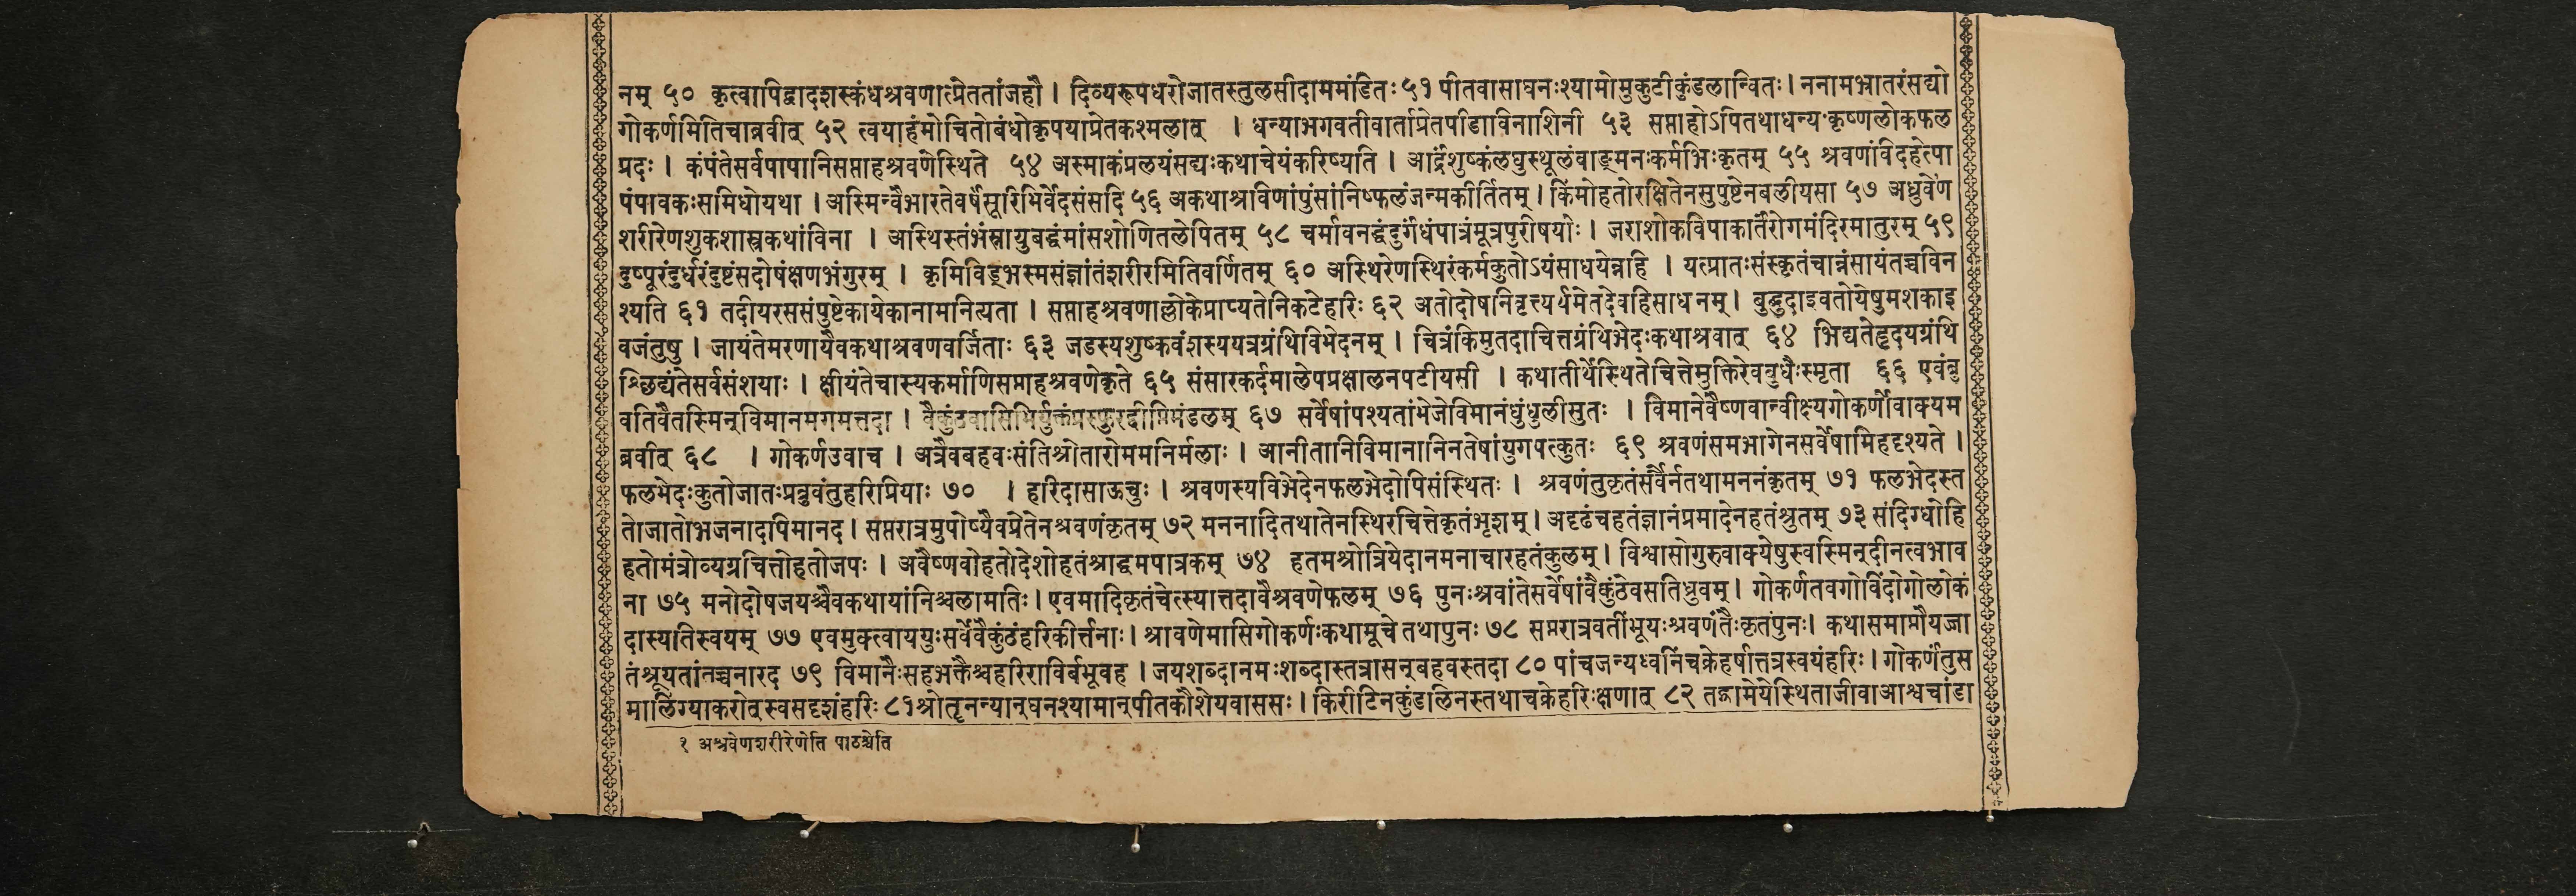 नम् ५० कृत्वापिद्वादशस्कंधश्रवणात्प्रेततांजहौ । दिव्यरूपधरोजातस्तुलसीदाममंडितः ५१ पीतवासाघनःश्यामोमुकुटीकुंडलान्वितः । ननामभ्रातरंसद्यो
गोकर्णमितिचाब्रवीत् ५२ त्वयाहंमोचितोबंधोकृपयाप्रेतकश्मलात् । धन्याभगवतीवार्ताप्रेतपीडाविनाशिनी ५३ सप्ताहोऽपितथाधन्यःकृष्णलोकफल
प्रदः । कंपंतेसर्वपापानिसप्ताहश्रवणेस्थिते ५४ अस्माकंप्रलयंसद्यःकथाचेयंकरिष्यति । आर्द्रंशुष्कंलघुस्थूलंवाङ्मनःकर्मभिःकृतम् ५५ श्रवणंविदहेत्पा
पंपावकःसमिधोयथा । अस्मिन्वैभारतेवर्षेसूरिभिर्वेदसंसदि ५६ अकथाश्राविणांपुंसांनिष्फलंजन्मकीर्तितम् । किंमोहतोरक्षितेनसुपुष्टेनबलीयसा ५७ अध्रुवेण
शरीरेणशुकशास्त्रकथांविना । अस्थिस्तंभंस्नायुबद्धंमांसशोणितलेपितम् ५८ चर्मावनद्धंदुर्गंधंपात्रंमूत्रपुरीषयोः । जराशोकविपाकार्तंरोगमंदिरमातुरम् ५९
दुष्पूरंदुर्धरंदुष्टंसदोषंक्षणभंगुरम् । कृमिविड्भस्मसंज्ञांतंशरीरमितिवर्णितम् ६० अस्थिरेणस्थिरंकर्मकुतोऽयंसाधयेन्नहि । यत्प्रातःसंस्कृतंचान्नंसायंतच्चविन
श्यति ६१ तदीयरससंपुष्टेकायेकानामनित्यता । सप्ताहश्रवणाल्लोकेप्राप्यतेनिकटेहरिः ६२ अतोदोषनिवृत्त्यर्थमेतदेवहिसाधनम् । बुद्बुदाइवतोयेषुमशकाइ
वजंतुषु । जायंतेमरणायैवकथाश्रवणवर्जिताः ६३ जडस्यशुष्कवंशस्ययत्रग्रंथिविभेदनम् । चित्रंकिमुतदाचित्तग्रंथिभेदःकथाश्रवात् ६४ भिद्यतेहृदयग्रंथि
श्छिद्यंतेसर्वसंशयाः । क्षीयंतेचास्यकर्माणिसप्ताहश्रवणेकृते ६५ संसारकर्दमालेपप्रक्षालनपटीयसी । कथातीर्थेस्थितेचित्तेमुक्तिरेवबुधैःस्मृता ६६ एवंब्रु
वतिवैतस्मिन्विमानमगमत्तदा । वैकुंठवासिभिर्युक्तंप्रस्फुरद्दीप्तिमंडलम् ६७ सर्वेषांपश्यतांभेजेविमानंधुंधुलीसुतः । विमानेवैष्णवान्वीक्ष्यगोकर्णोवाक्यम
ब्रवीत् ६८ । गोकर्णउवाच । अत्रैवबहवःसंतिश्रोतारोममनिर्मलाः । आनीतानिविमानानिनतेषांयुगपत्कुतः ६९ श्रवणंसमभागेनसर्वेषामिहदृश्यते ।
फलभेदःकुतोजातःप्रब्रुवंतुहरिप्रियाः ७० । हरिदासाऊचुः । श्रवणस्यविभेदेनफलभेदोपिसंस्थितः । श्रवणंतुकृतंसर्वैर्नतथामननंकृतम् ७१ फलभेदस्त
तोजातोभजनादपिमानद । सप्तरात्रमुपोष्यैवप्रेतेनश्रवणंकृतम् ७२ मननादितथातेनस्थिरचित्तेकृतंभृशम् । अदृढंचहतंज्ञानंप्रमादेनहतंश्रुतम् ७३ संदिग्धोहि
हतोमंत्रोव्यग्रचित्तोहतोजपः । अवैष्णवोहतोदेशोहतंश्राद्धमपात्रकम् ७४ हतमश्रोत्रियेदानमनाचारहतंकुलम् । विश्वासोगुरुवाक्येषुस्वस्मिन्दीनत्वभाव
ना ७५ मनोदोषजयश्चैवकथायांनिश्चलामतिः । एवमादिकृतंचेत्स्यात्तदावैश्रवणेफलम् ७६ पुनःश्रवांतेसर्वेषांवैकुंठेवसतिध्रुवम् । गोकर्णतवगोविंदोगोलोकं
दास्यतिस्वयम् ७७ एवमुक्त्वाययुःसर्वेवैकुंठंहरिकीर्त्तनाः । श्रावणेमासिगोकर्णःकथामूचेतथापुनः ७८ सप्तरात्रवतींभूयःश्रवणंतैःकृतंपुनः । कथासमाप्तौयज्जा
तंश्रूयतांतच्चनारद ७९ विमानैःसहभक्तैश्चहरिराविर्बभूवह । जयशब्दानमःशब्दास्तत्रासन्बहवस्तदा ८० पांचजन्यध्वनिंचक्रेहर्षात्तत्रस्वयंहरिः । गोकर्णंतुस
मालिंग्याकरोत्स्वसदृशंहरिः ८१ श्रोतॄनन्यान्घनश्यामान्पीतकौशेयवाससः । किरीटिनकुंडलिनस्तथाचक्रेहरिःक्षणात् ८२ तद्ग्रामेयेस्थिताजीवाआश्वचांडा
१ अश्रवेणशरीरेणेति पाठश्चेति